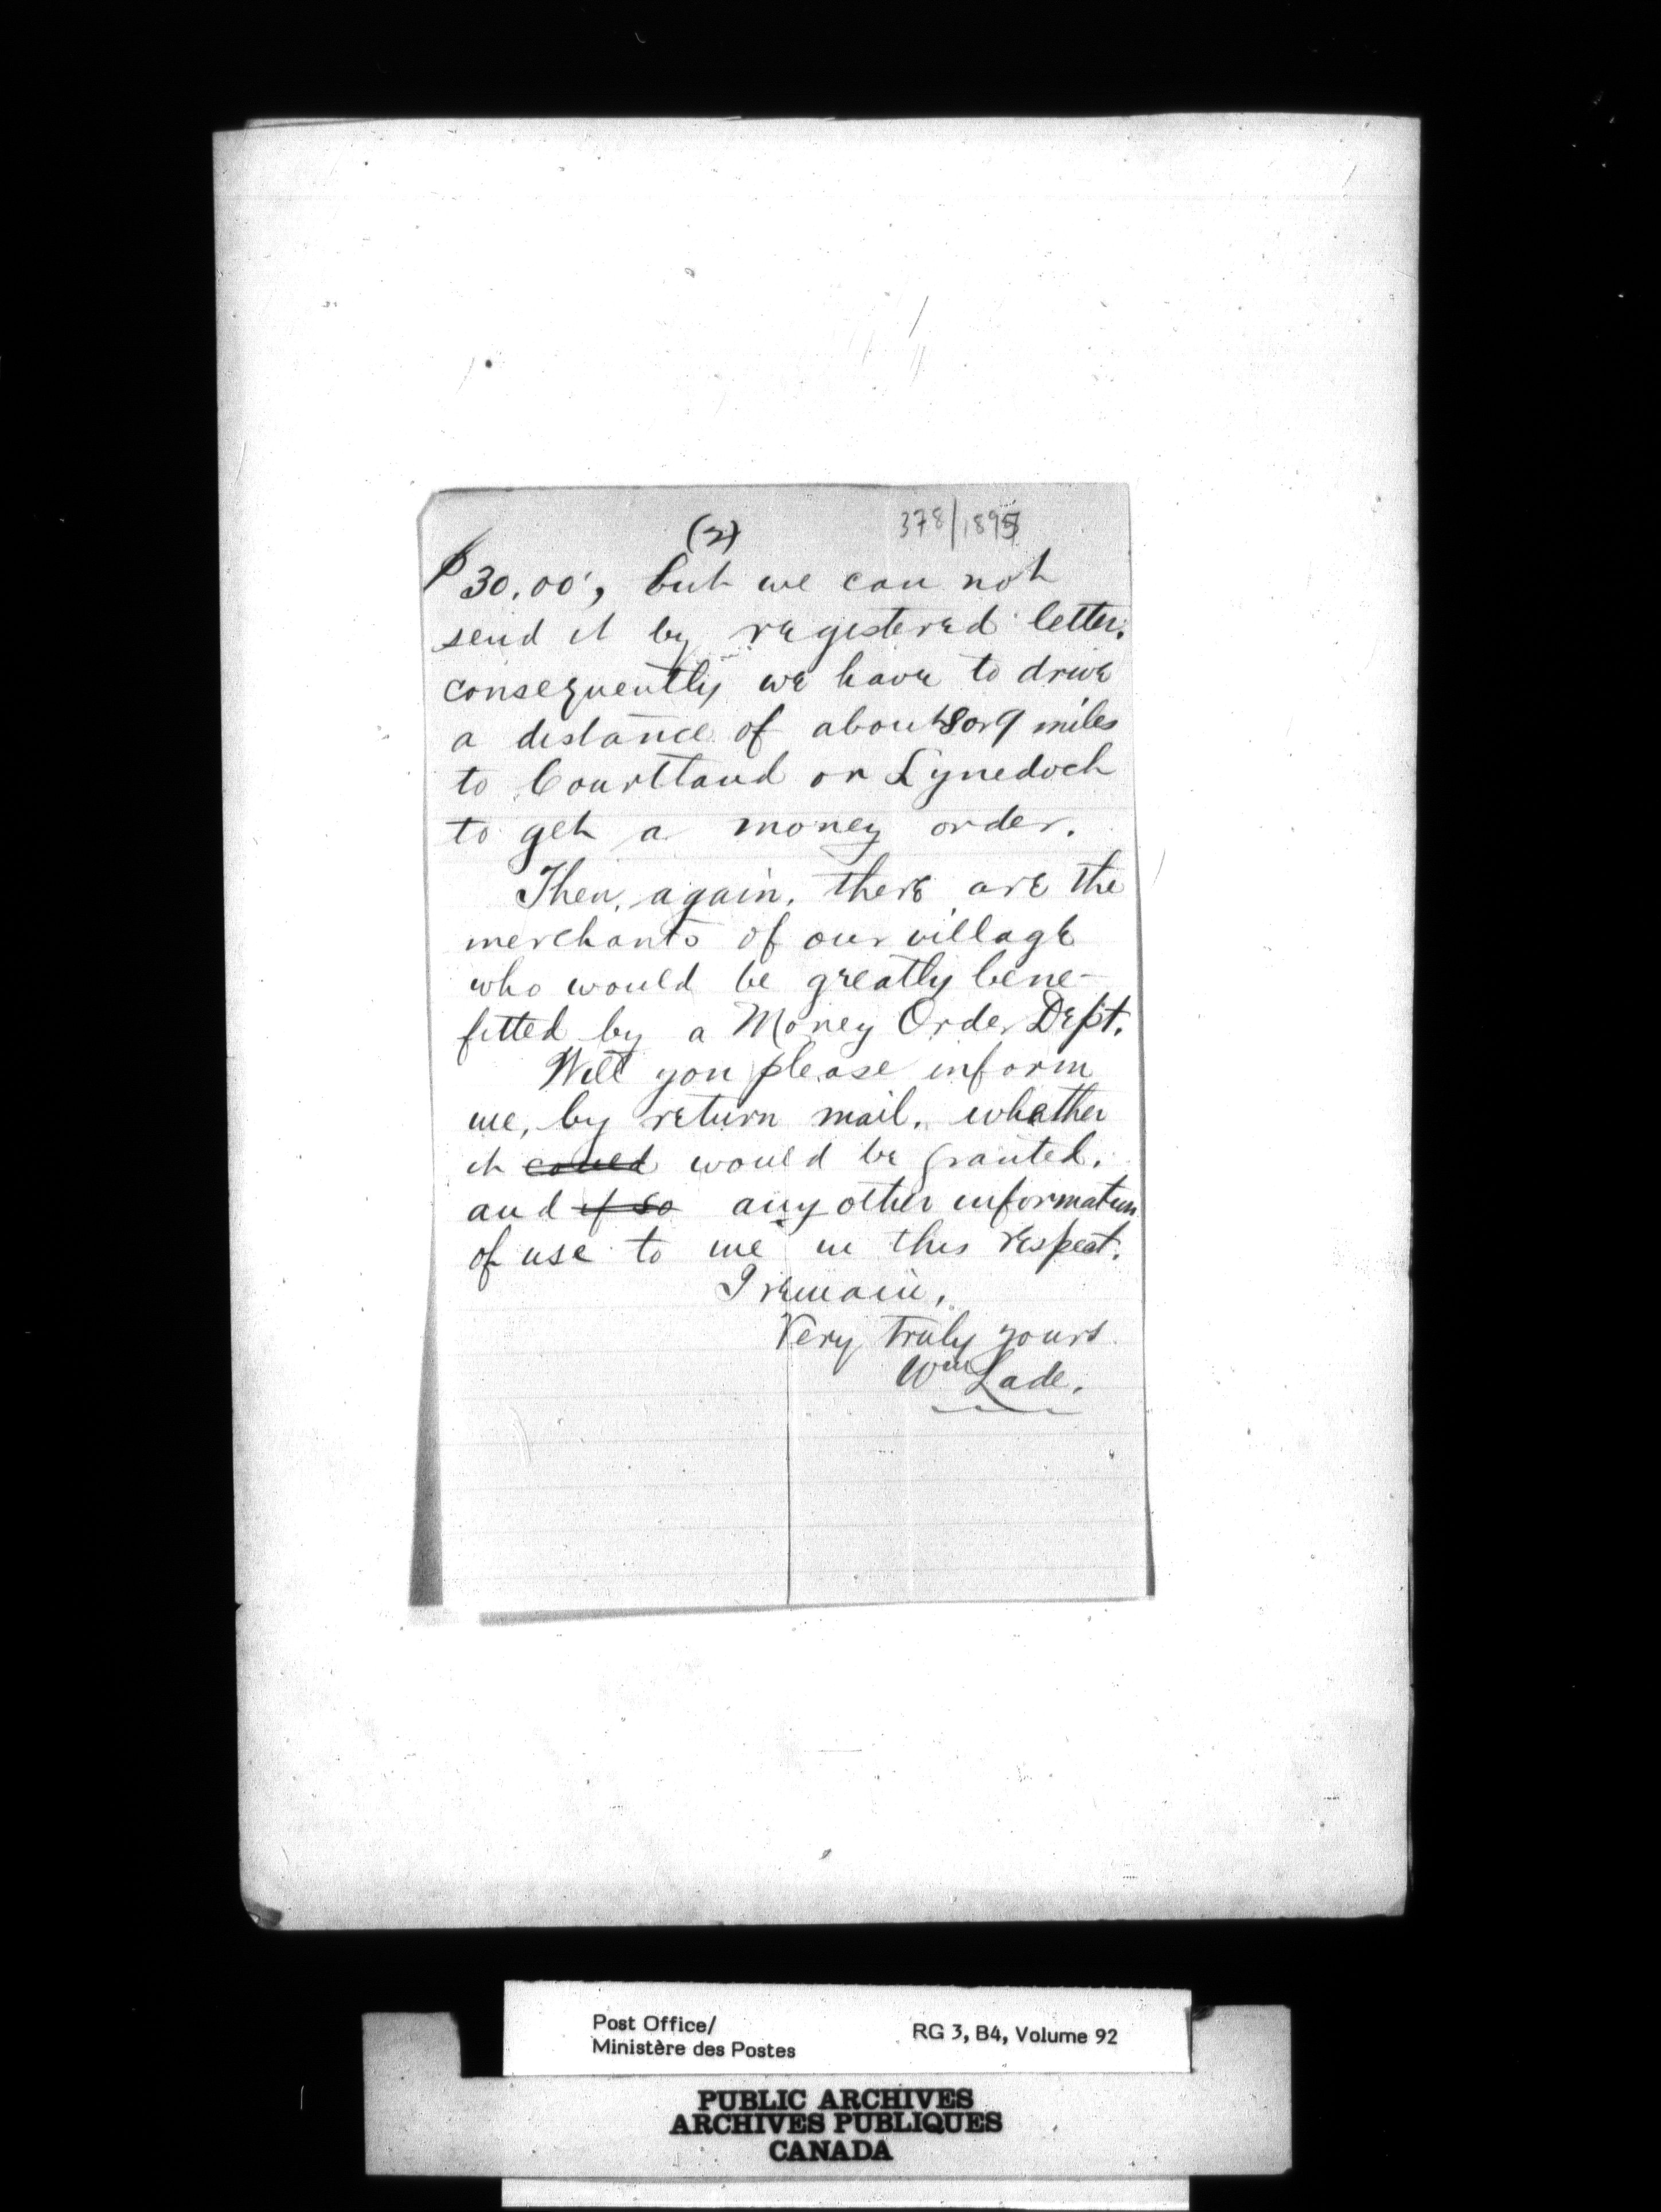 (2)
378/1895
$30.00, but we can not
send it by registered letter.
consequently we have to drive
a distance of about 8 or 9 miles
to Courtland or Lynedoch
to get a money order.
Then, again, there are the
merchants of our village
who would be greatly bene-
fitted by a Money Order Dept.
Will you please inform
me, by return mail, whether
it could would be granted.
and if so any other information
of use to me in this respect.
I remain,
Very truly yours
Wm Lade.
Post Office/
Ministère des Postes
RG 3, B4, Volume 92
PUBLIC ARCHIVES
ARCHIVES PUBLIQUES
CANADA